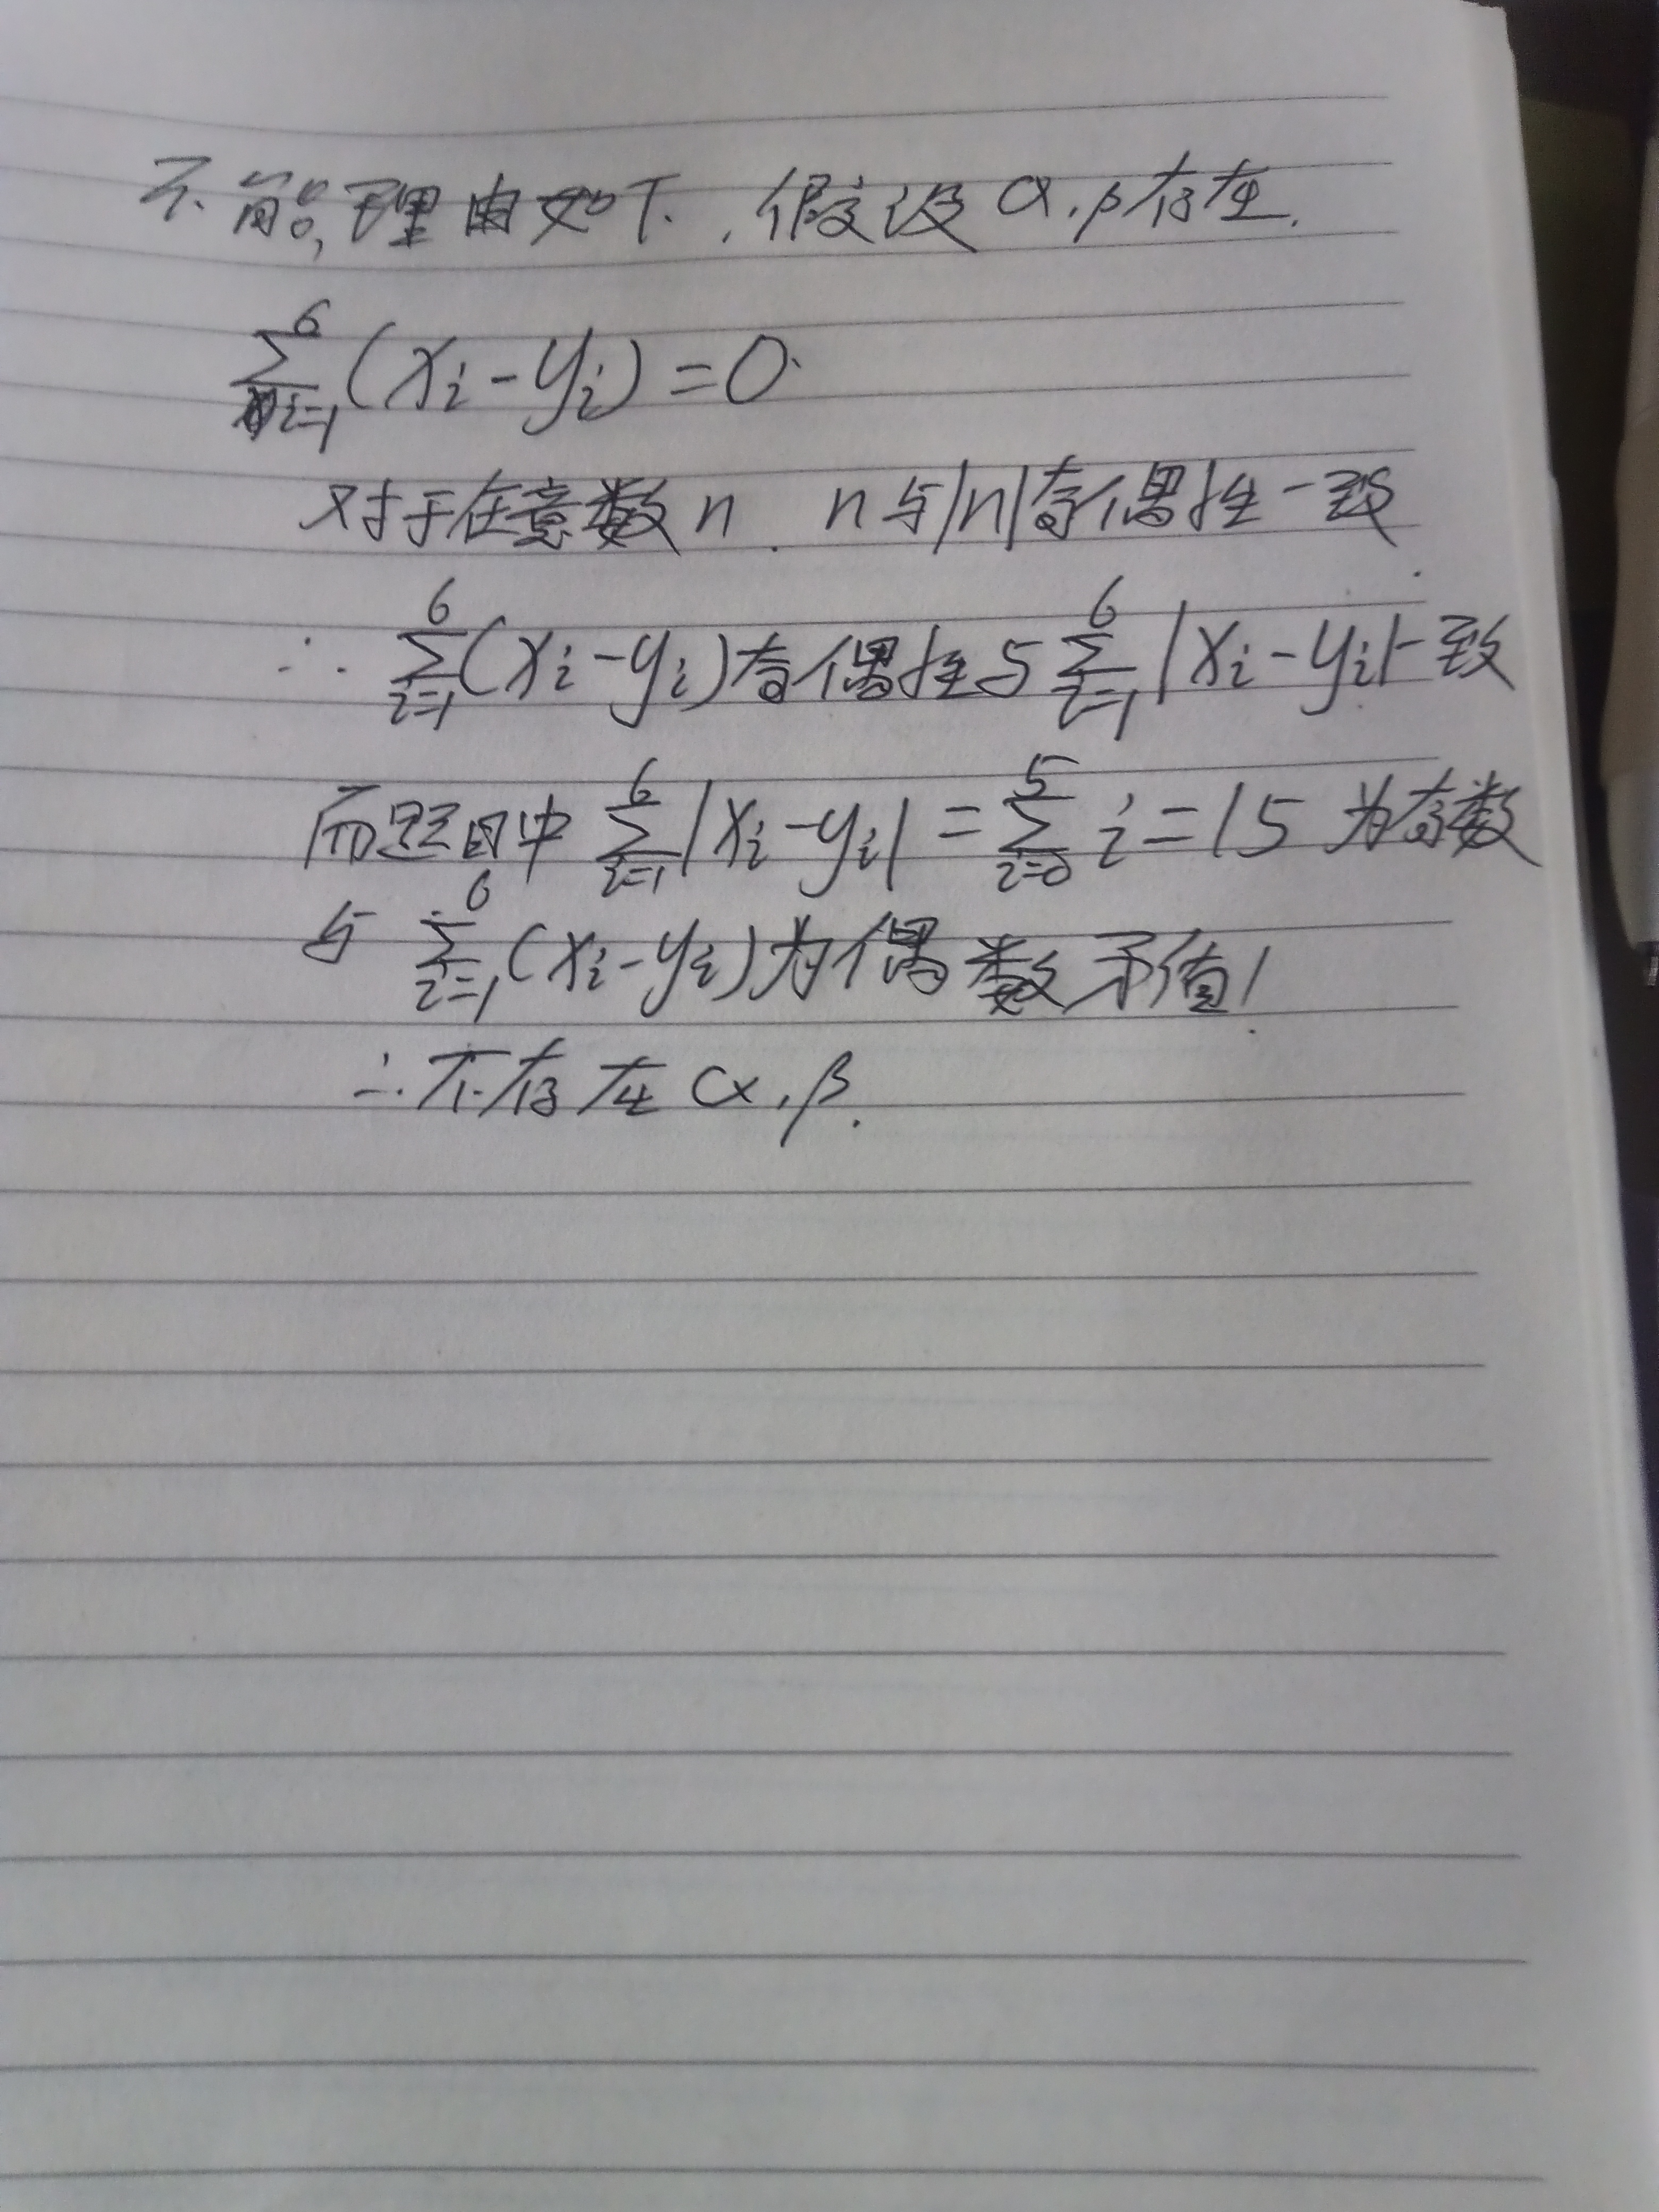 不能,理由如下.假设α,β存在.
$\sum_{i=1}^{6}(x_i-y_i)=0$.
对于任意数n.n与|n|奇偶性一致.
∴ $\sum_{i=1}^{6}(x_i-y_i)$奇偶性与$\sum_{i=1}^{6}|x_i-y_i|$一致
而题目中 $\sum_{i=1}^{6}|x_i-y_i|=\sum_{i=0}^{5}i=15$ 为奇数
与 $\sum_{i=1}^{6}(x_i-y_i)$为偶数矛值!
∴不存在α,β.